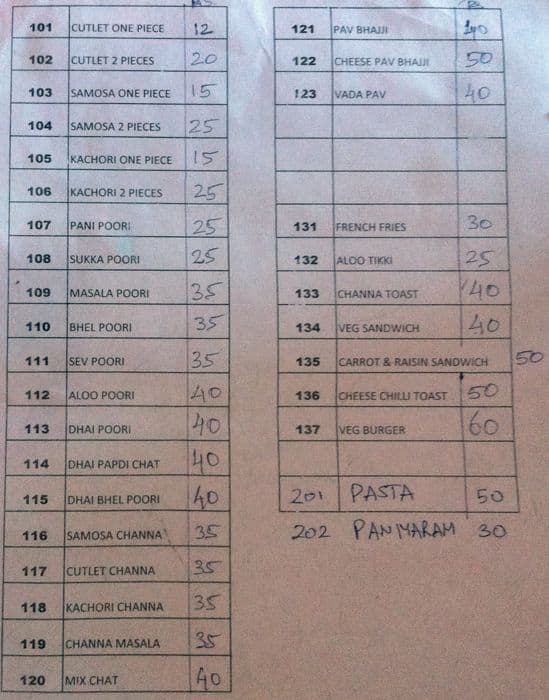 RS
101 CUTLET ONE PIECE 12
102 CUTLET 2 PIECES 20
103 SAMOSA ONE PIECE 15
104 SAMOSA 2 PIECES 25
105 KACHORI ONE PIECE 15
106 KACHORI 2 PIECES 25
107 PANI POORI 25
108 SUKKA POORI 25
109 MASALA POORI 35
110 BHEL POORI 35
111 SEV POORI 35
112 ALOO POORI 40
113 DHAI POORI 40
114 DHAI PAPDI CHAT 40
115 DHAI BHEL POORI 40
116 SAMOSA CHANNA 35
117 CUTLET CHANNA 35
118 KACHORI CHANNA 35
119 CHANNA MASALA 35
120 MIX CHAT 40
121 PAV BHAJJI 40
122 CHEESE PAV BHAJJI 50
123 VADA PAV 40
131 FRENCH FRIES 30
132 ALOO TIKKI 25
133 CHANNA TOAST 40
134 VEG SANDWICH 40
135 CARROT & RAISIN SANDWICH 50
136 CHEESE CHILLI TOAST 50
137 VEG BURGER 60
201 PASTA 50
202 PANIYARAM 30